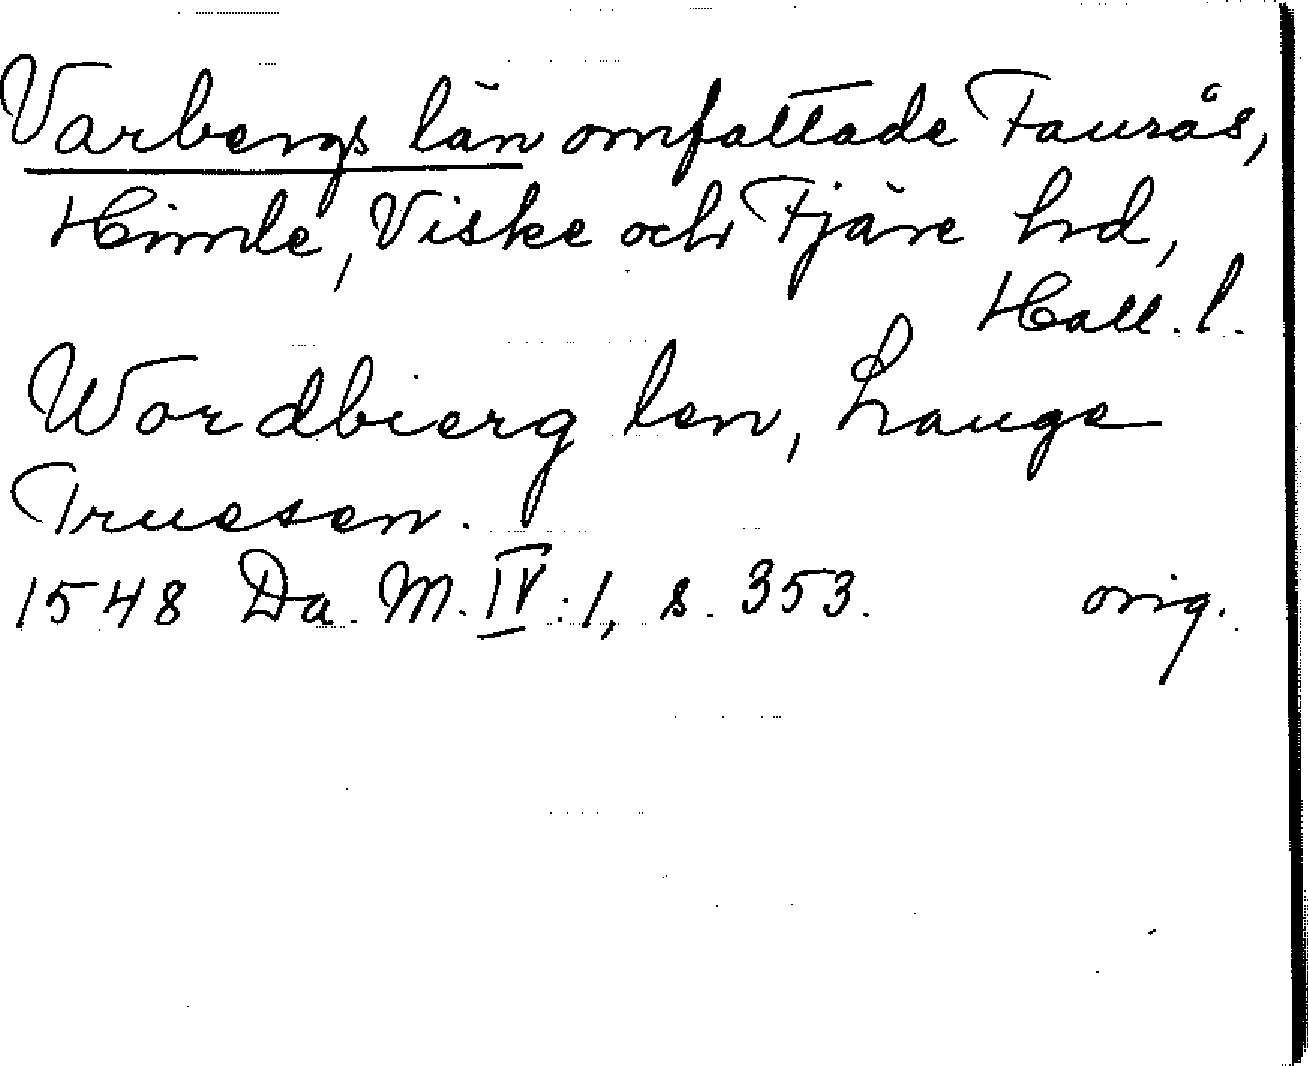 Varbergs län omfattade Faurås,
Himle, Viske och Fjäre hd,
Hall. l.
Wordbierg len, Lauge
Truesen.
1548 Da. M. IV:1, s. 353. orig.